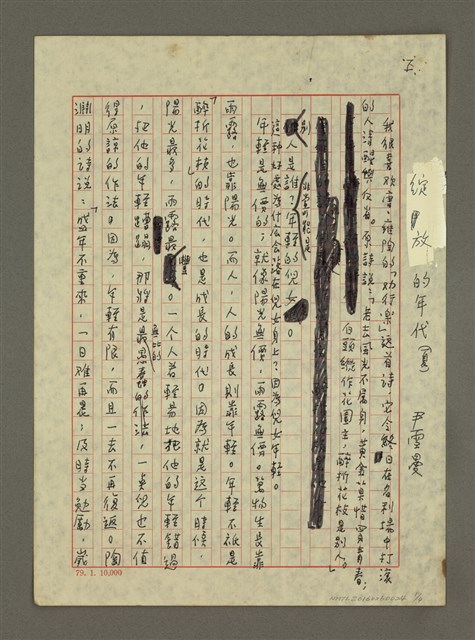 五、
綻放的年代(續) 尹雪曼
我很喜歡唐人雍陶的「勸行樂」這首詩,它令終日在名利場中打滾
的人清醒與反省。原詩說:「老去風光不屬身,黃金莫惜買青春;
白頭縱作花園主,醉折花枝是別人。」
別人是誰?年輕的兒女。
這種好處為什麼會落在兒女身上?因為兒女年輕。
年輕是無價的;就像陽光無價,雨露無價。萬物生長靠
雨露,也靠陽光。而人,人的成長則靠年輕。年輕不祇是
「醉折花枝」的時代,也是成長的時代。因為就是這个時候,
陽光最多,雨露最豐。一个人若輕易地把他的年輕錯過
,把他的年輕蹧蹋,那將是無比的最愚蠢的作法,一點兒也不值
得原諒的作法。因為,年輕有限,而且一去不再復返。陶
淵明的詩說:「盛年不重來,一日難再晨;及時當勉勵,歲
79.1.10,000